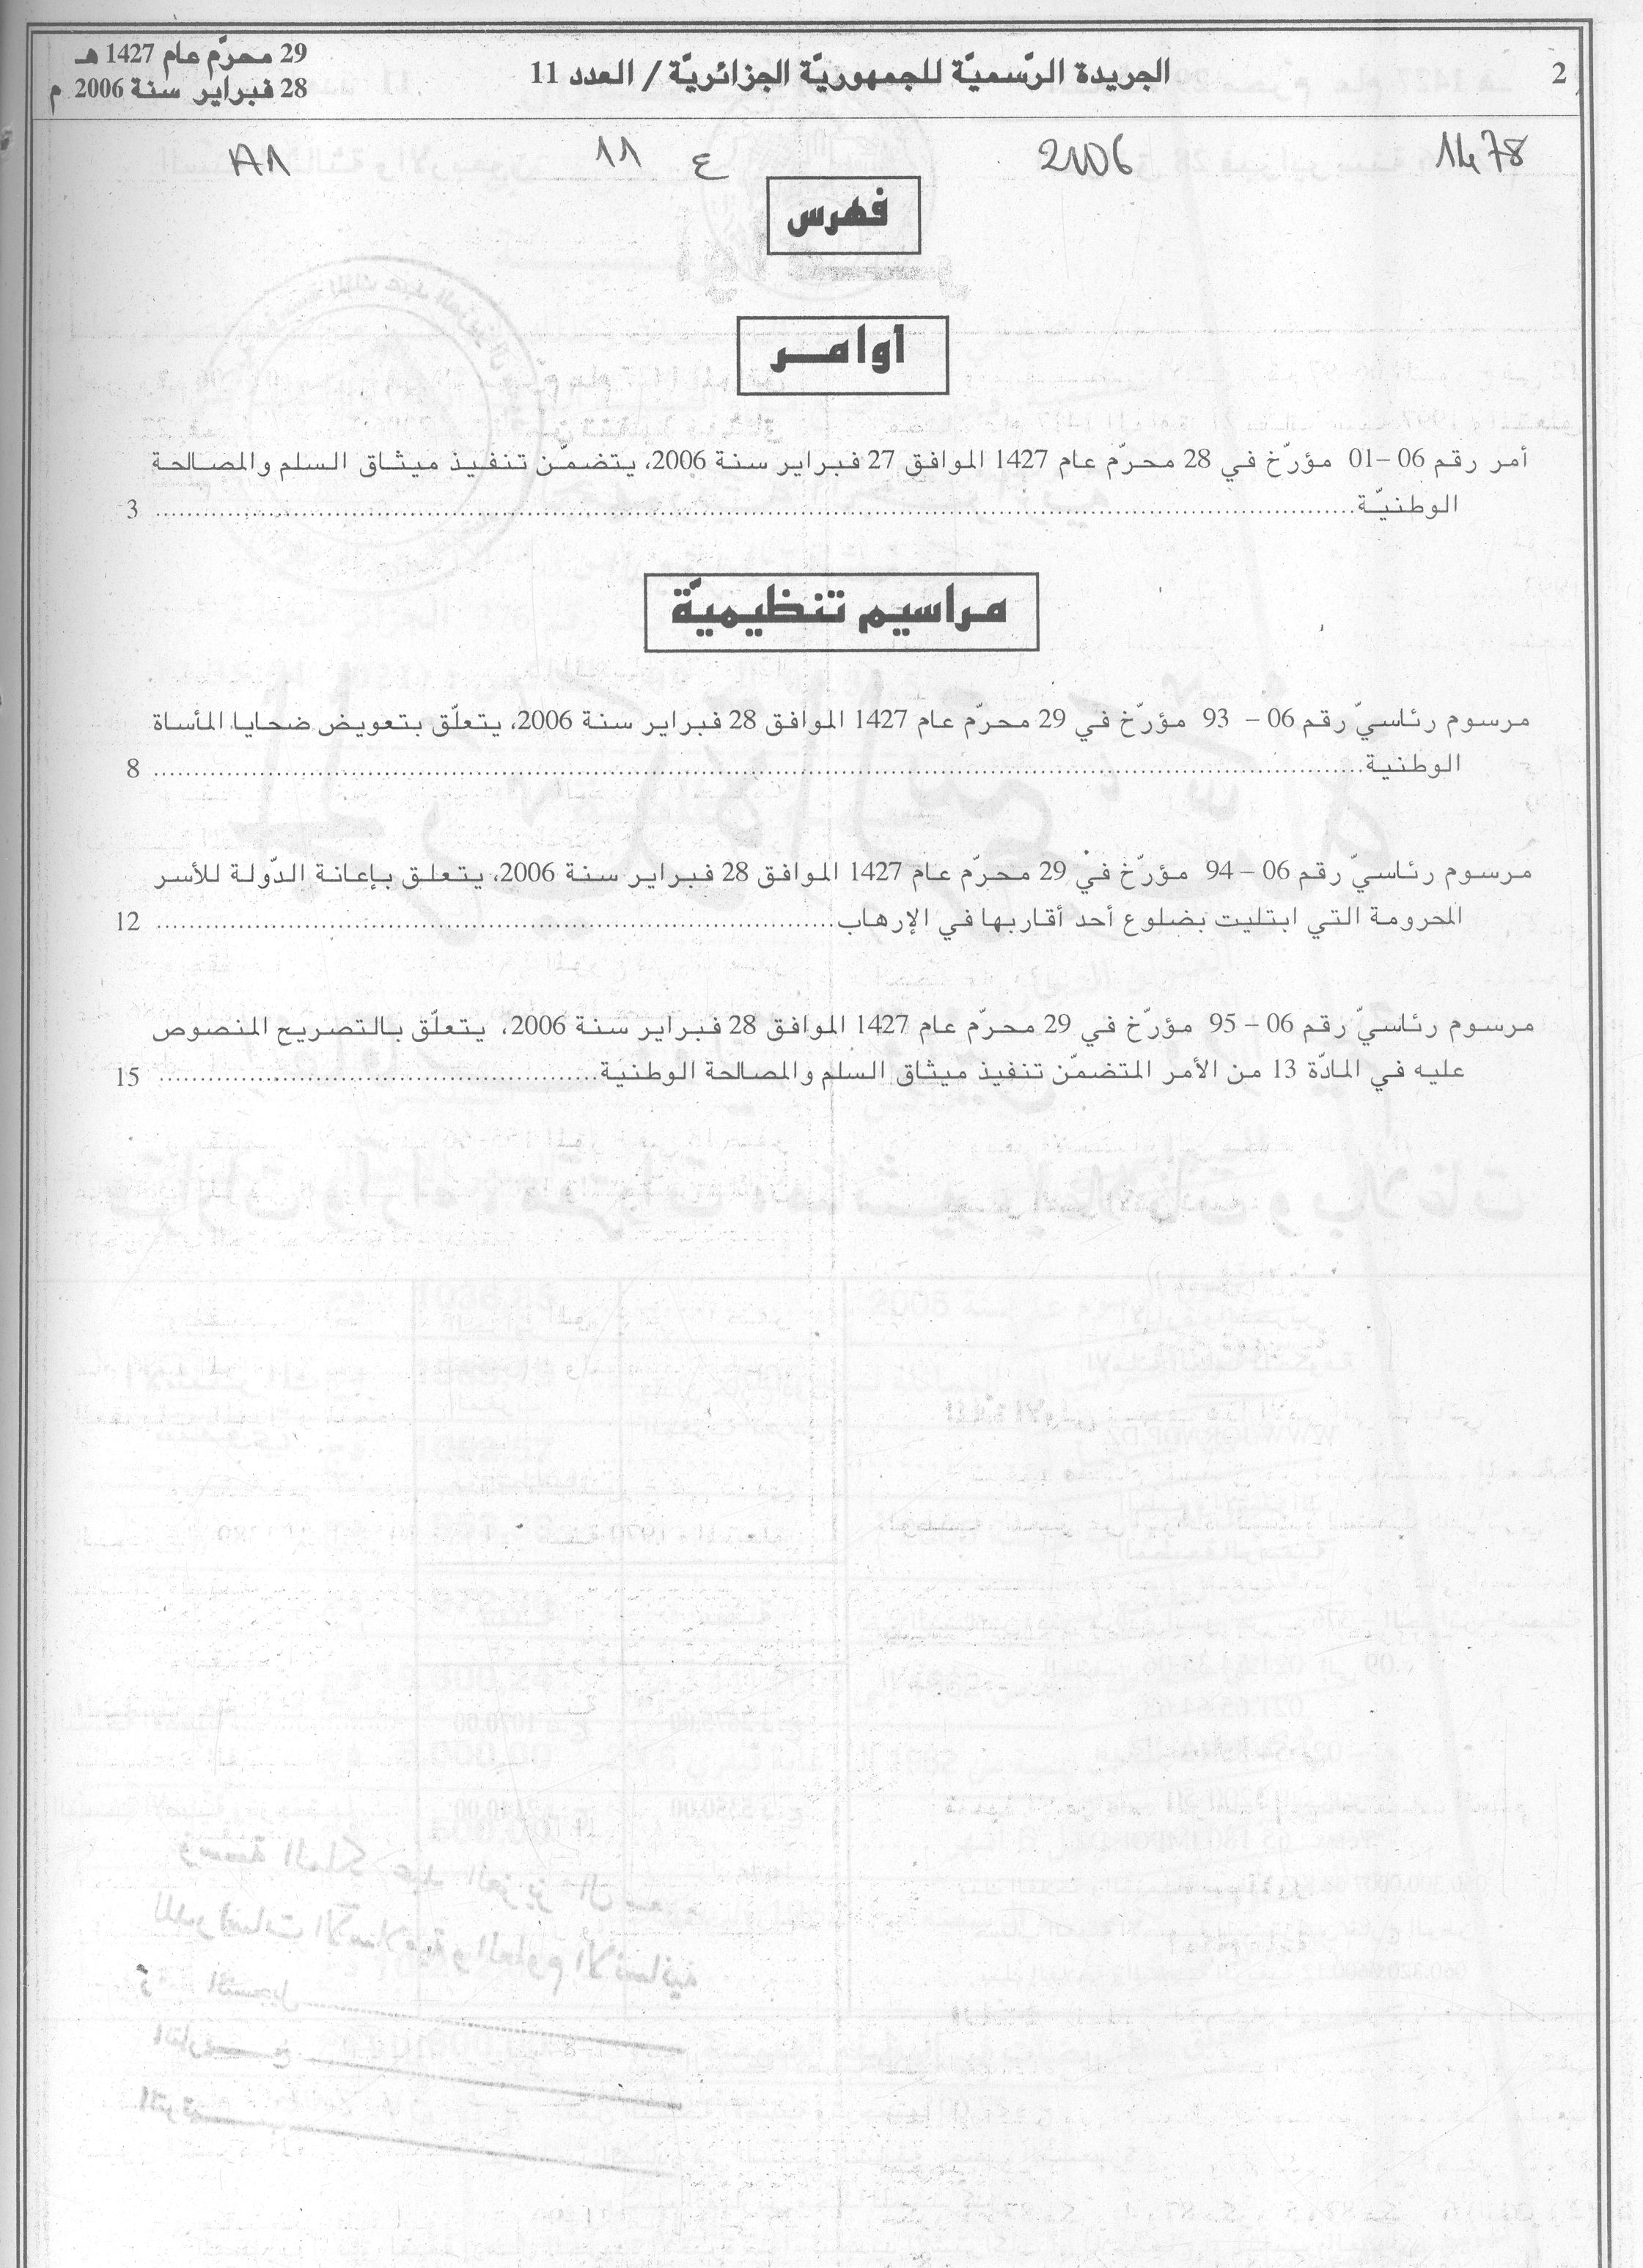 2
الجريدة الرّسميّة للجمهوريّة الجزائريّة / العدد 11
29 محرّم عام 1427 هـ
28 فبراير سنة 2006 م
1478 2006 ع 11 A1
فهرس
أوامر
أمر رقم 06–01 مؤرّخ في 28 محرّم عام 1427 الموافق 27 فبراير سنة 2006، يتضمّن تنفيذ ميثاق السلم والمصالحة
الوطنيّة........................................................................ 3
مراسيم تنظيميّة
مرسوم رئاسيّ رقم 06 – 93 مؤرّخ في 29 محرّم عام 1427 الموافق 28 فبراير سنة 2006، يتعلّق بتعويض ضحايا المأساة
الوطنية........................................................................ 8
مرسوم رئاسيّ رقم 06 – 94 مؤرّخ في 29 محرّم عام 1427 الموافق 28 فبراير سنة 2006، يتعلق بإعانة الدّولة للأسر
المحرومة التي ابتليت بضلوع أحد أقاربها في الإرهاب........................................ 12
مرسوم رئاسيّ رقم 06 – 95 مؤرّخ في 29 محرّم عام 1427 الموافق 28 فبراير سنة 2006، يتعلّق بالتصريح المنصوص
عليه في المادّة 13 من الأمر المتضمّن تنفيذ ميثاق السلم والمصالحة الوطنيّة........................ 15